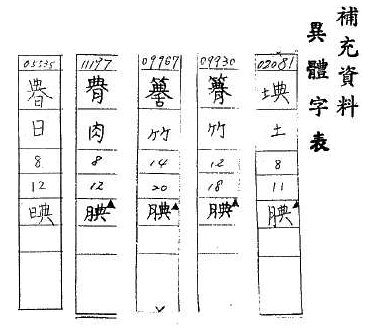 補充資料
異體字表
02081
土
8
11
腆
09930
竹
12
18
腆
09967
竹
14
20
腆
11197
肉
8
12
腆
05535
日
8
12
晪